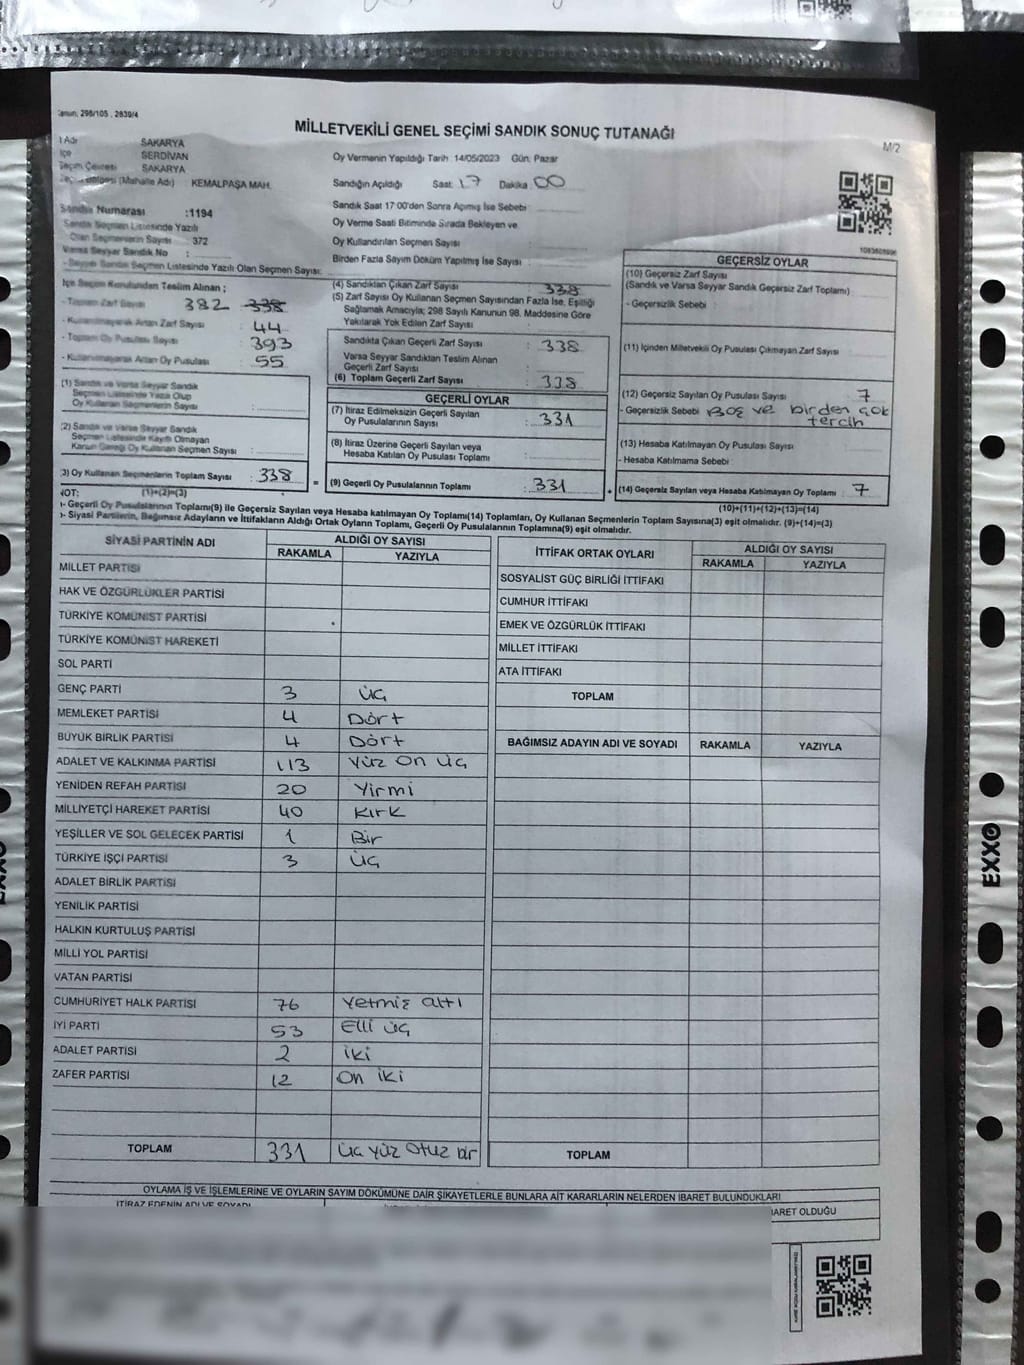 Kanun: 298/105 , 2839/4
MİLLETVEKİLİ GENEL SEÇİMİ SANDIK SONUÇ TUTANAĞI
M/2
İl Adı SAKARYA
İlçe SERDİVAN
Seçim Çevresi SAKARYA
Seçim Bölgesi (Mahalle Adı) KEMALPAŞA MAH.
Sandık Numarası :1194
Sandık Seçmen Listesinde Yazılı
Olan Seçmenlerin Sayısı : 372
Varsa Seyyar Sandık No :
- Seyyar Sandık Seçmen Listesinde Yazılı Olan Seçmen Sayısı:
Oy Vermenin Yapıldığı Tarih: 14/05/2023 Gün: Pazar
Sandığın Açıldığı Saat: 17 Dakika: 00
Sandık Saat 17:00'den Sonra Açılmış İse Sebebi :
Oy Verme Saati Bitiminde Sırada Bekleyen ve
Oy Kullandırılan Seçmen Sayısı :
Birden Fazla Sayım Döküm Yapılmış İse Sayısı :
İlçe Seçim Kurulundan Teslim Alınan ;
- Toplam Zarf Sayısı : 382 338
- Kullanılmayarak Artan Zarf Sayısı : 44
- Toplam Oy Pusulası Sayısı : 393
- Kullanılmayarak Artan Oy Pusulası : 55
(1) Sandık ve Varsa Seyyar Sandık
Seçmen Listesinde Yazılı Olup
Oy Kullanan Seçmenlerin Sayısı :
(2) Sandık ve Varsa Seyyar Sandık
Seçmen Listesinde Kayıtlı Olmayan
Kanun Gereği Oy Kullanan Seçmen Sayısı :
(3) Oy Kullanan Seçmenlerin Toplam Sayısı : 338
(1)+(2)=(3)
(4) Sandıktan Çıkan Zarf Sayısı : 338
(5) Zarf Sayısı Oy Kullanan Seçmen Sayısından Fazla İse, Eşitliği
Sağlamak Amacıyla; 298 Sayılı Kanunun 98. Maddesine Göre
Yakılarak Yok Edilen Zarf Sayısı :
Sandıkta Çıkan Geçerli Zarf Sayısı : 338
Varsa Seyyar Sandıktan Teslim Alınan
Geçerli Zarf Sayısı :
(6) Toplam Geçerli Zarf Sayısı : 338
GEÇERLİ OYLAR
(7) İtiraz Edilmeksizin Geçerli Sayılan
Oy Pusulalarının Sayısı : 331
(8) İtiraz Üzerine Geçerli Sayılan veya
Hesaba Katılan Oy Pusulası Toplamı :
= (9) Geçerli Oy Pusulalarının Toplamı : 331
GEÇERSİZ OYLAR
(10) Geçersiz Zarf Sayısı
(Sandık ve Varsa Seyyar Sandık Geçersiz Zarf Toplamı)
- Geçersizlik Sebebi :
(11) İçinden Milletvekili Oy Pusulası Çıkmayan Zarf Sayısı
(12) Geçersiz Sayılan Oy Pusulası Sayısı : 7
- Geçersizlik Sebebi : Boş ve birden çok
tercih
(13) Hesaba Katılmayan Oy Pusulası Sayısı :
- Hesaba Katılmama Sebebi :
+ (14) Geçersiz Sayılan veya Hesaba Katılmayan Oy Toplamı : 7
(10)+(11)+(12)+(13)=(14)
NOT:
- Geçerli Oy Pusulalarının Toplamı(9) ile Geçersiz Sayılan veya Hesaba katılmayan Oy Toplamı(14) Toplamları, Oy Kullanan Seçmenlerin Toplam Sayısına(3) eşit olmalıdır. (9)+(14)=(3)
- Siyasi Partilerin, Bağımsız Adayların ve İttifakların Aldığı Ortak Oyların Toplamı, Geçerli Oy Pusulalarının Toplamına(9) eşit olmalıdır.
SİYASİ PARTİNİN ADI ALDIĞI OY SAYISI
RAKAMLA YAZIYLA
MİLLET PARTİSİ
HAK VE ÖZGÜRLÜKLER PARTİSİ
TÜRKİYE KOMÜNİST PARTİSİ
TÜRKİYE KOMÜNİST HAREKETİ
SOL PARTİ
GENÇ PARTİ 3 üç
MEMLEKET PARTİSİ 4 Dört
BÜYÜK BİRLİK PARTİSİ 4 Dört
ADALET VE KALKINMA PARTİSİ 113 Yüz On üç
YENİDEN REFAH PARTİSİ 20 Yirmi
MİLLİYETÇİ HAREKET PARTİSİ 40 Kırk
YEŞİLLER VE SOL GELECEK PARTİSİ 1 Bir
TÜRKİYE İŞÇİ PARTİSİ 3 üç
ADALET BİRLİK PARTİSİ
YENİLİK PARTİSİ
HALKIN KURTULUŞ PARTİSİ
MİLLİ YOL PARTİSİ
VATAN PARTİSİ
CUMHURİYET HALK PARTİSİ 76 Yetmiş altı
İYİ PARTİ 53 Elli üç
ADALET PARTİSİ 2 iki
ZAFER PARTİSİ 12 On iki
TOPLAM 331 üç yüz otuz bir
İTTİFAK ORTAK OYLARI ALDIĞI OY SAYISI
RAKAMLA YAZIYLA
SOSYALİST GÜÇ BİRLİĞİ İTTİFAKI
CUMHUR İTTİFAKI
EMEK VE ÖZGÜRLÜK İTTİFAKI
MİLLET İTTİFAKI
ATA İTTİFAKI
TOPLAM
BAĞIMSIZ ADAYIN ADI VE SOYADI RAKAMLA YAZIYLA
TOPLAM
OYLAMA İŞ VE İŞLEMLERİNE VE OYLARIN SAYIM DÖKÜMÜNE DAİR ŞİKAYETLERLE BUNLARA AİT KARARLARIN NELERDEN İBARET BULUNDUKLARI
İTİRAZ EDENİN ADI VE SOYADI
İBARET OLDUĞU
EXXO